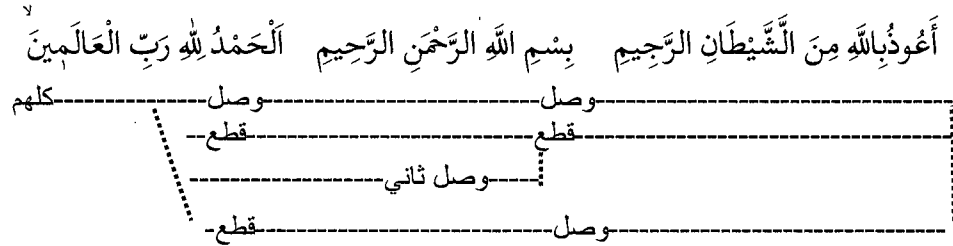 أَعُوذُبِاللَّهِ مِنَ الَّشَّيْطَانِ الرَّجِيمِ   بِسْمِ اللَّهِ الرَّحْمَنِ الرَّحِيمِ   اَلْحَمْدُ لِلَّهِ رَبِّ الْعَالَمِينَۙ
وصل وصل كلهم
قطع قطع
وصل ثاني
وصل قطع